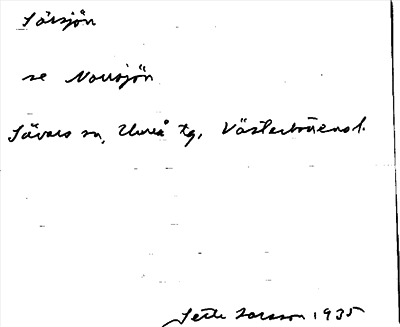 Sörsjön
se Norrsjön
Sävars sn, Umeå tg, Västerbottens l.
Larsson 1935